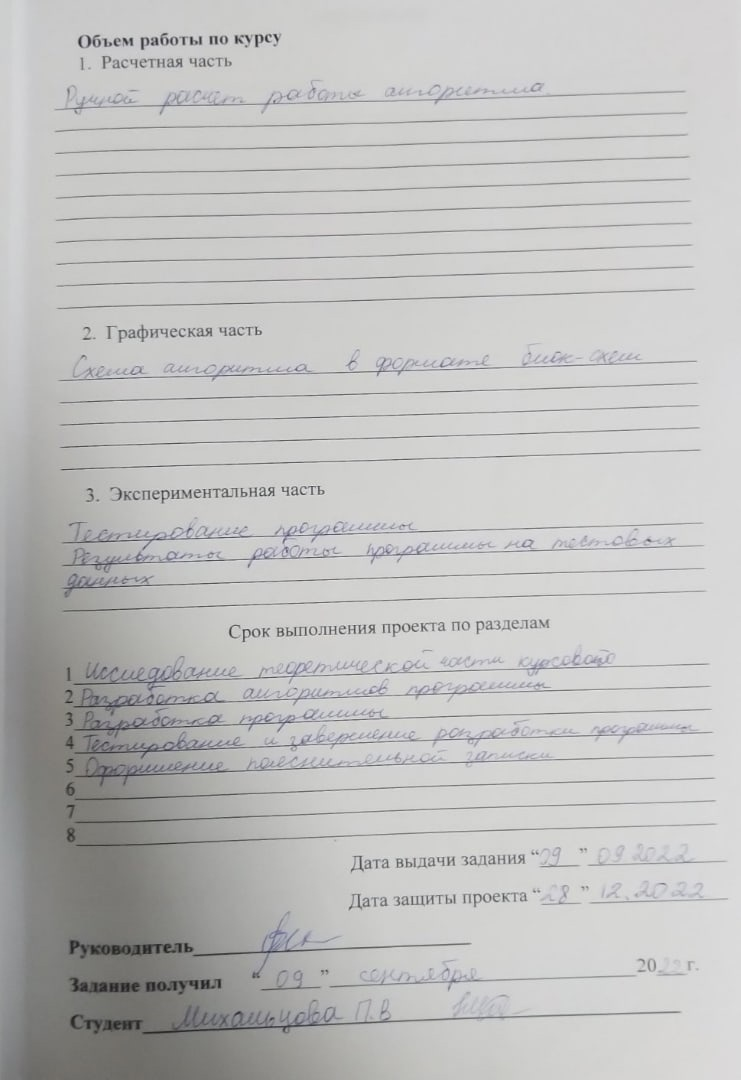 Объем работы по курсу
1. Расчетная часть
Ручной расчет работы алгоритма.
2. Графическая часть
Схема алгоритма в формате блок-схем
3. Экспериментальная часть
Тестирование программы
Результаты работы программы на тестовых
данных
Срок выполнения проекта по разделам
1 Исследование теоретической части курсового
2 Разработка алгоритмов программы
3 Разработка программы
4 Тестирование и завершение разработки программы
5 Оформление пояснительной записки
6
7
8
Дата выдачи задания “09” 09.2022
Дата защиты проекта “28” 12.2022
Руководитель
Задание получил “09” сентября 2022 г.
Студент Михальцова П.В